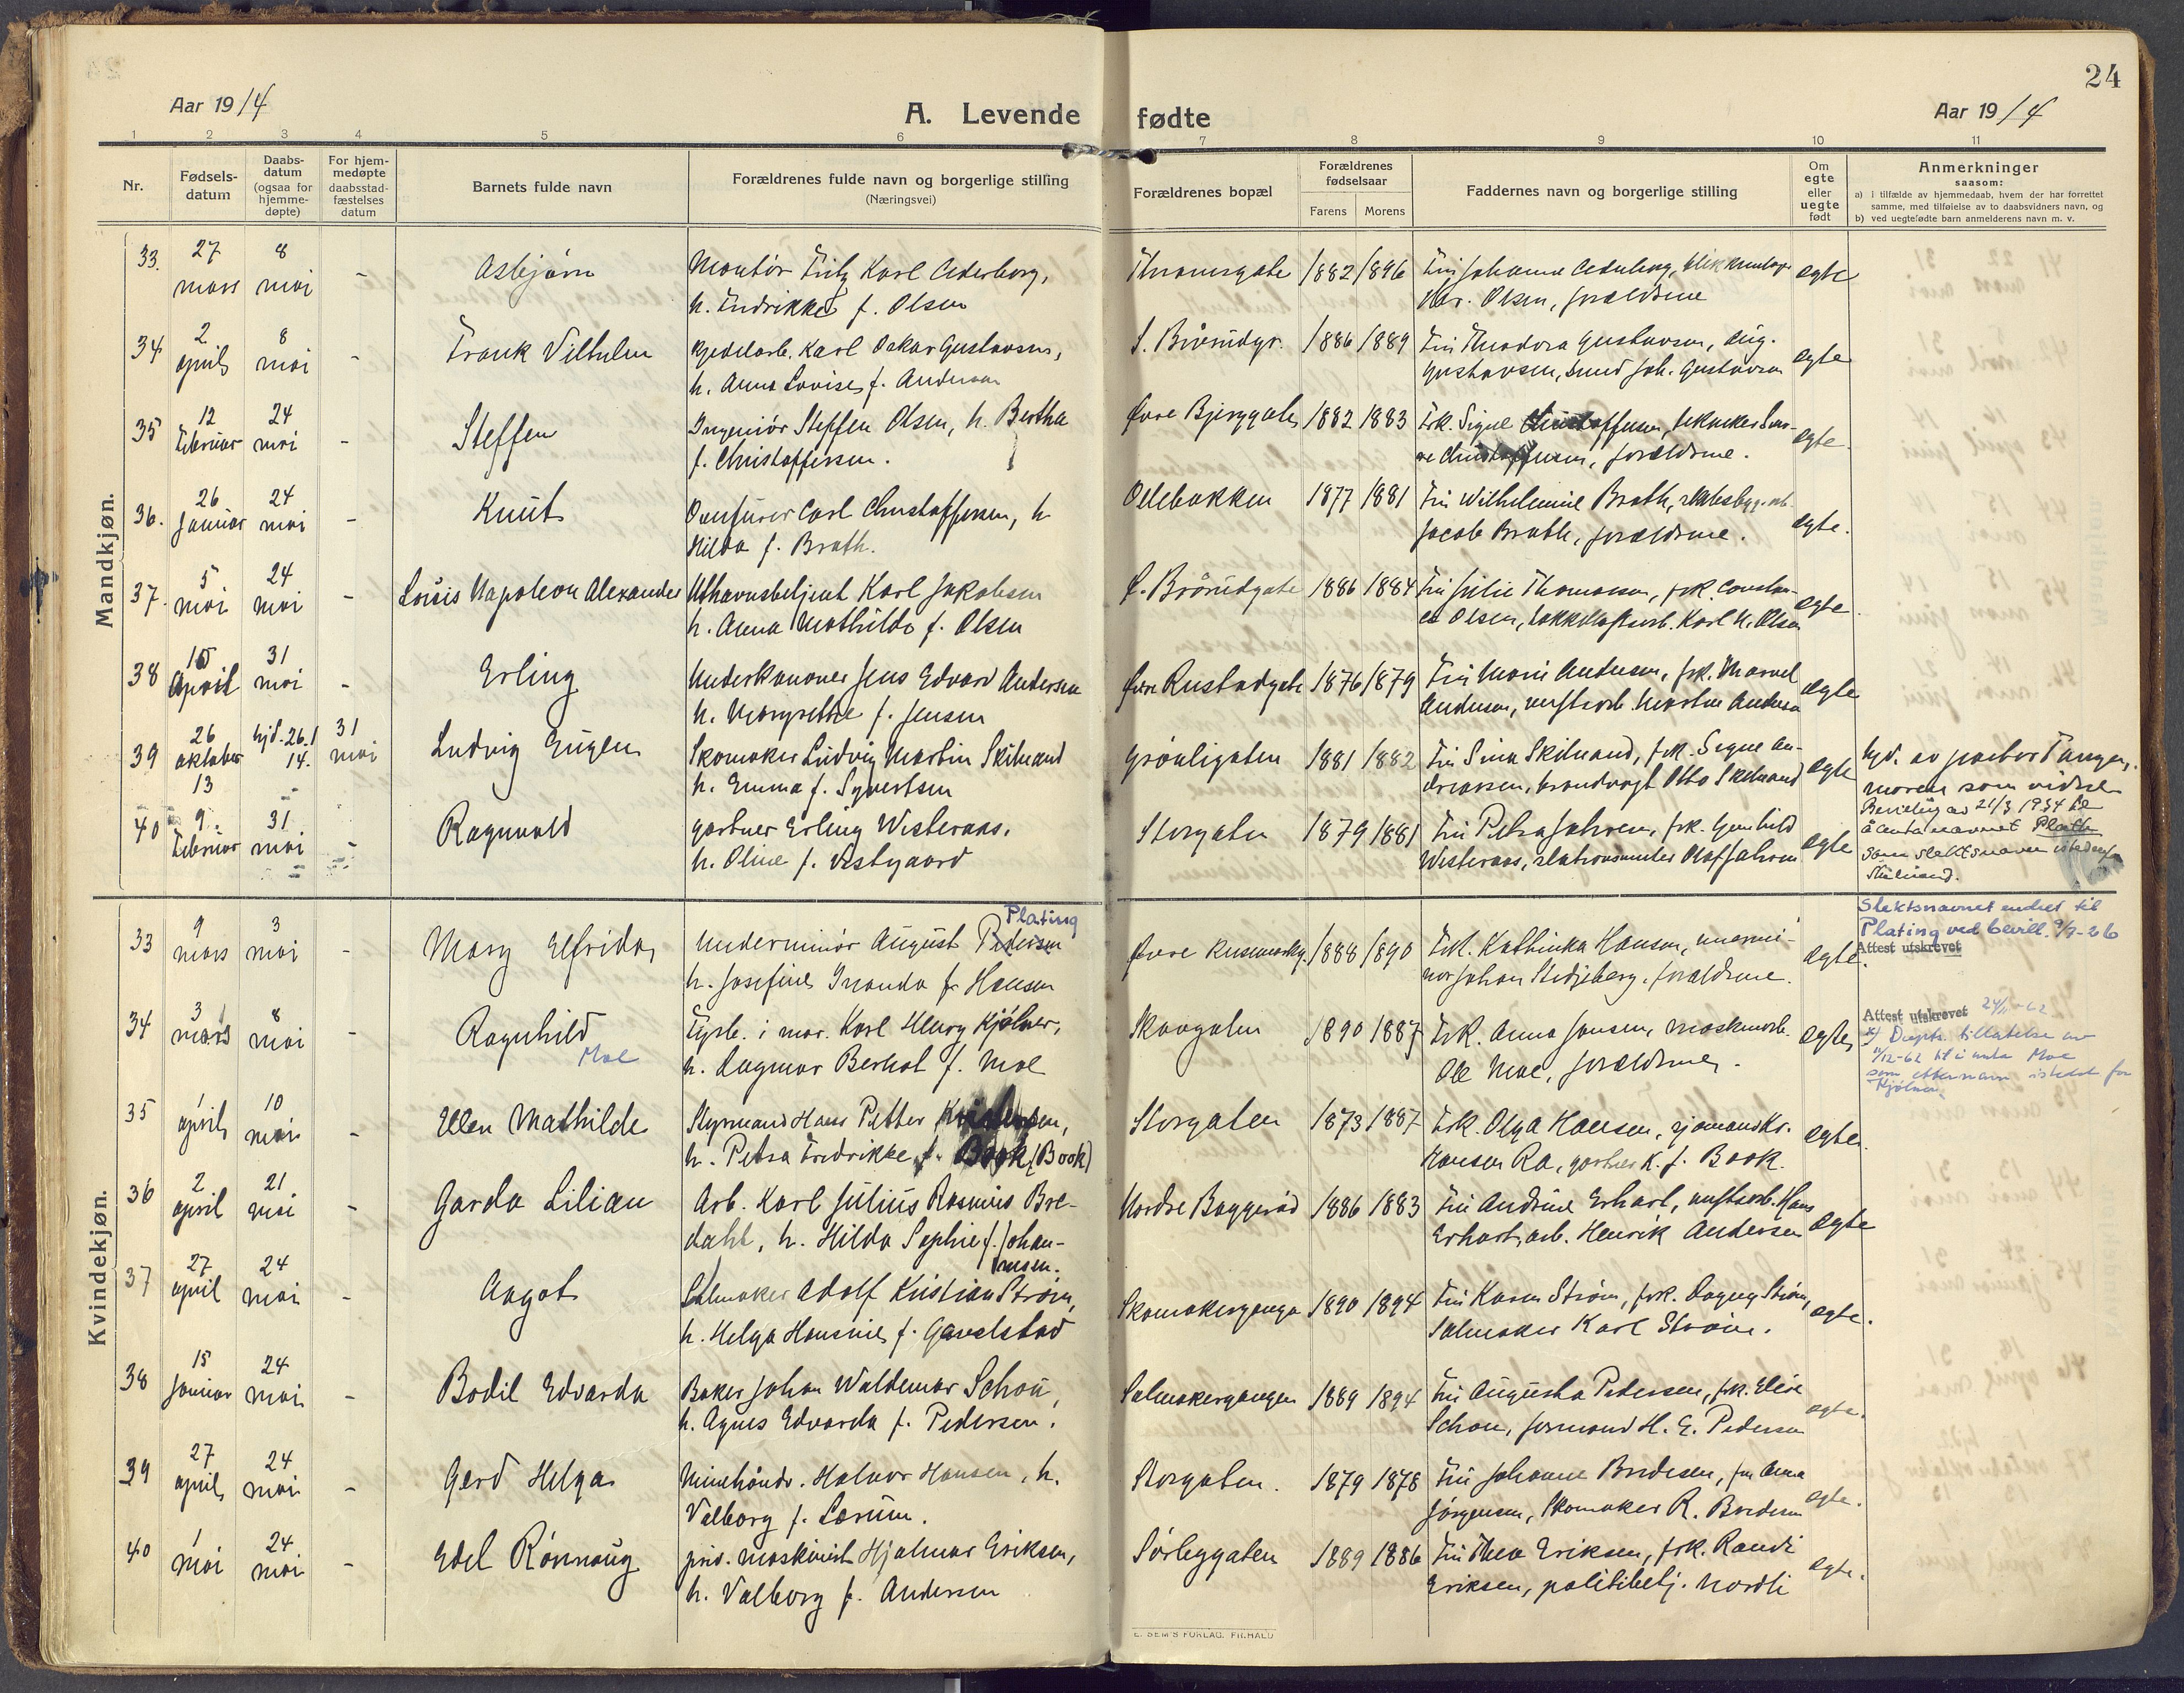 24
Aar 1914
A. Levende fødte
Aar 1914
1 2 3 4 5 6 7 8 9 10 11
Nr.
Fødsels-
datum
Daabs-
datum
(ogsaa for
hjemme-
døpte)
For hjem-
medøpte
daabsstad-
fæstelses
datum
Barnets fulde navn
Forældrenes fulde navn og borgerlige stilling
(Næringsvei)
Forældrenes bopæl
Forældrenes
fødselsaar
Farens Morens
Faddernes navn og borgerlige stilling
Om
egte
eller
uegte
født
Anmerkninger
saasom:
a) i tilfælde av hjemmedaab, hvem der har forrettet
samme, med tilføielse av to daabsvidners navn, og
b) ved uegtefødte barn anmelderens navn m. v.
Mandkjøn.
33. 27 mars 8 mai - Asbjørn Montør Fritz Karl Cederborg, 1882 1896 Fru Johanne egte
h. Fredrikke f. Olsen Olsen, forældrene
34 2 april 8 mai - Frank Vilhelm Karl Oskar Gustavsen, 1886 1889 Fru Theodora Gustavsen, Aug. egte
h. Anna Lovise f. Andersen Gustavsen, smed Joh. Gustavsen
35 12 Februar 24 mai - Steffen Ingeniør Steffen Olsen, h. Bertha Øvre Bjerggate 1882 1883 Frk. Signe Christoffersen, tekniker egte
f. Christoffersen. Christoffersen, forældrene.
36. 26 Januar 24 mai - Knut Carl Christoffersen, h. Ollebakken 1877 1881 Fru Wilhelmine Brath, egte.
Hilda f. Brath. Jacob Brath, forældrene.
37. 5 mai 24 mai - Louis Napoleon Alexander Karl Jakobsen 1886 1884 Fru Julie Thomassen, frk. Constan- egte.
h. Anna Mathilde f. Olsen ce Olsen, Karl H. Olsen
38 15 April 31 mai - Erling Underkanoner Jens Edvard Andersen Øvre Rustadgate 1876 1879 Fru Marie Andersen, frk. egte
h. Margrethe f. Jensen Andersen, verftsarb. Martin Andersen
39 26 oktober 13 hjd. 26.1 14. 31 mai Ludvig Eugen Skomaker Ludvig Martin Skilnand Grønligaten 1881 1882 Fru Sina Skilnand, frk. Signe An- egte hjd. av pastor Tangen,
h. Emma f. Syvertsen dreassen, brandvagt Otto Skilnand moren som vidne
Bevilling av 21/3 1934 til
å anta navnet Plath
som slektsnavn istedenfor
Skilnand.
40 9. Februar 31 mai - Ragnvald Gartner Erling Westeraas, Storgaten 1879 1881 Fru Petra Jahren, frk. Gunhild egte
h. Oline f. Vestgaard Westeraas, stationsmester Olaf Jahren
Kvindekjøn.
33 9 mars 3 mai - Mary Elfrida Underminør August Pedersen Plating 1888 1890 Frk. Kathinka Hansen, egte.
h. Josefine f. Hansen Johan Stedjeberg, forældrene.
Slektsnavnet endret til
Plating ved bevill.
Attest utskrevet
34 3 mars 8 mai - Ragnhild Moe Karl Henry Kjølner, Skovgaten 1890 1887 Frk. Anna Jansen, maskinarb. egte
h. Dagmar f. Moe Ole Moe, forældrene.
Attest utskrevet
x) Dept. tillatelse av
11/12-62 til å anta Moe
som etternavn istedet for
Kjølner.
35 1 april 10 mai - Ellen Mathilde Styrmand Hans Petter Storgaten 1873 1887 Frk. Olga Hansen, sjømand Kr. egte.
h. Petra Fredrikke f. Book (Book) Hansen Ra, gartner K. J. Book.
36 2 april 21 mai - Garda Lilian Arb. Karl Julius Rasmus Bre- Nordre Baggerød 1886 1883 Fru Andrine Erhart, verftsarb. Hans egte
dahl, h. Hilda Sophie f. Johan- Erhart, arb. Henrik Andersen
nesen.
37 27 april 24 mai - Aagot Salmaker Adolf Kristian Strøm, Skomakergangen 1890 1894 Fru Karen Strøm, frk. Dagny Strøm, egte.
h. Helga Hansine f. Gavelstad Salmaker Karl Strøm.
38 15 Januar 24 mai - Bodil Edvarda Baker Johan Waldemar Schou, Salmakergangen 1889 1894 Fru Augusta Pedersen, frk. Elise egte.
h. Agnes Edvarda f. Pedersen. Schou, formand H. E. Pedersen
39 27 april 24 mai - Gerd Helga Halvor Hansen, h. Storgaten. 1879 1878 Fru Johanne Bredesen, fru Anna egte.
Valborg f. Lerum. Jørgensen, Skomaker R. Bredesen
40 1 mai 24 mai - Edel Rønnaug priv. maskinist Hjalmar Eriksen, Sørbyggaten 1889 1886 Fru Thea Eriksen, frk. Randi egte.
h. Valborg f. Andersen Eriksen, politibetj. Nordli
E. SEM'S FORLAG, FR.HALD